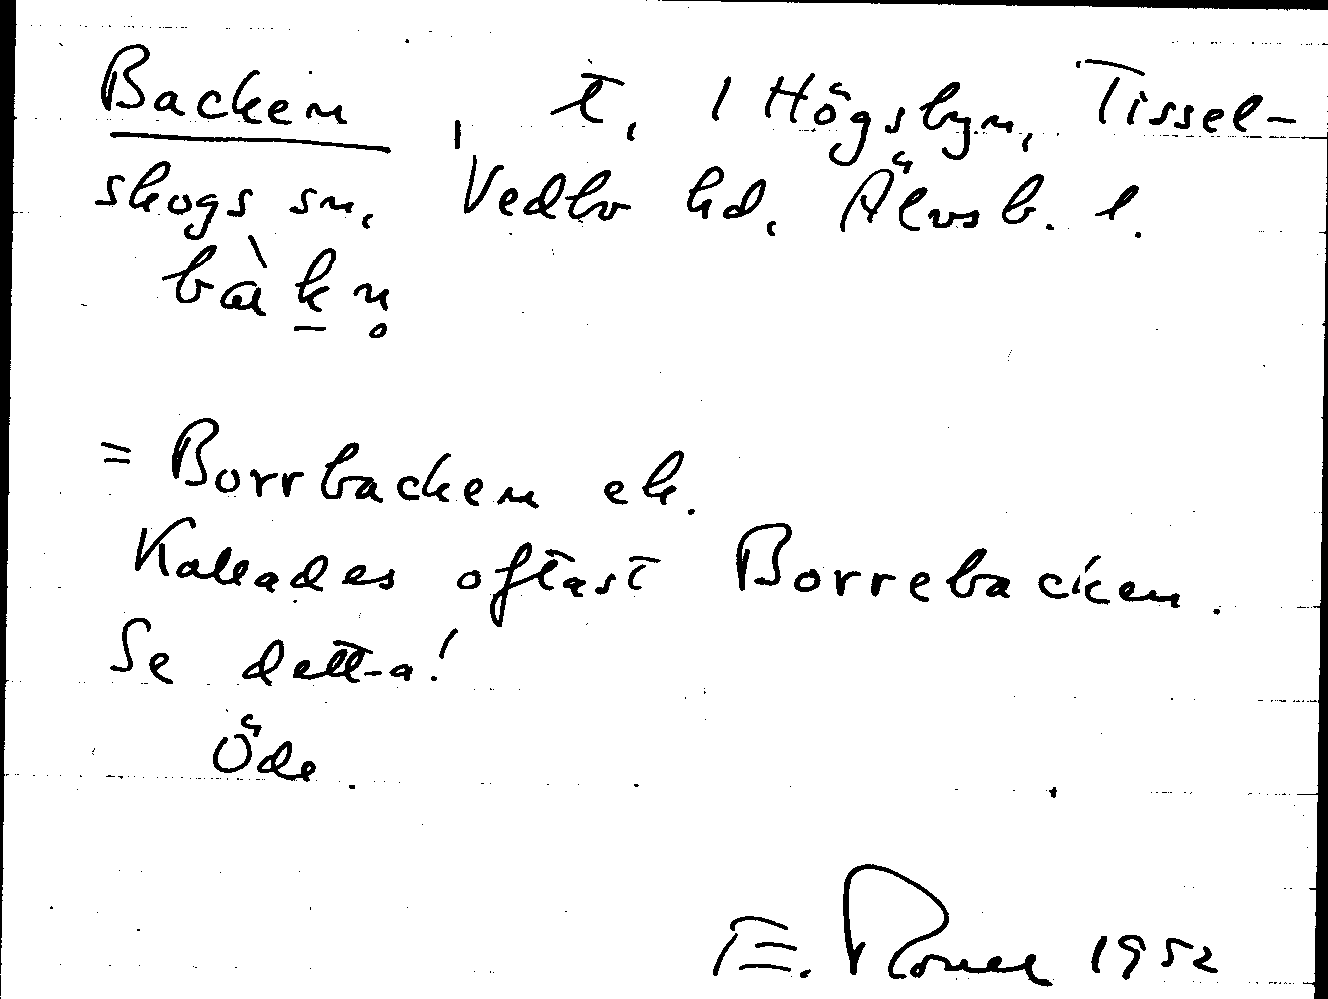 Backen, t, i Högsbyn, Tissel-
skogs sn, Vedbo hd, Älvsb. l.
bàkn̥
= Borrbacken ek.
Kallades oftast Borrebacken.
Se detta!
Öde.
E. 1952